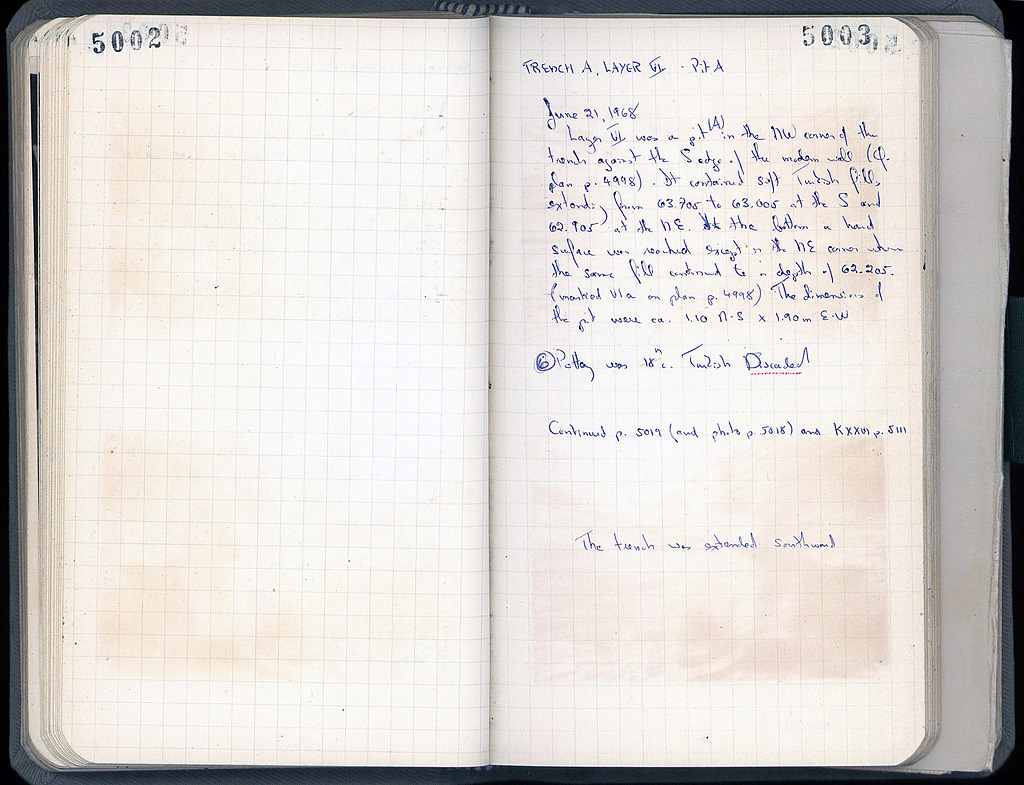 5002
5003
TRENCH A, LAYER VI - Pit A
June 21, 1968
Layer VI was a pit (A) in the NW corner of the
trench against the S edge of the modern wall (cf.
plan p. 4998). It contained soft Turkish fill,
extending from 63.705 to 63.005 at the S and
62.905 at the NE. At the bottom a hard
surface was reached except in the NE corner where
the same fill continued to a depth of 62.205.
(marked VIa on plan p. 4998) The dimensions of
the pit were ca. 1.10 N-S x 1.90m E-W
⑥ Pottery was 18th c. Turkish Discarded
Continued p. 5019 (and photo p. 5018) and KXXVI p. 5111
The trench was extended southward